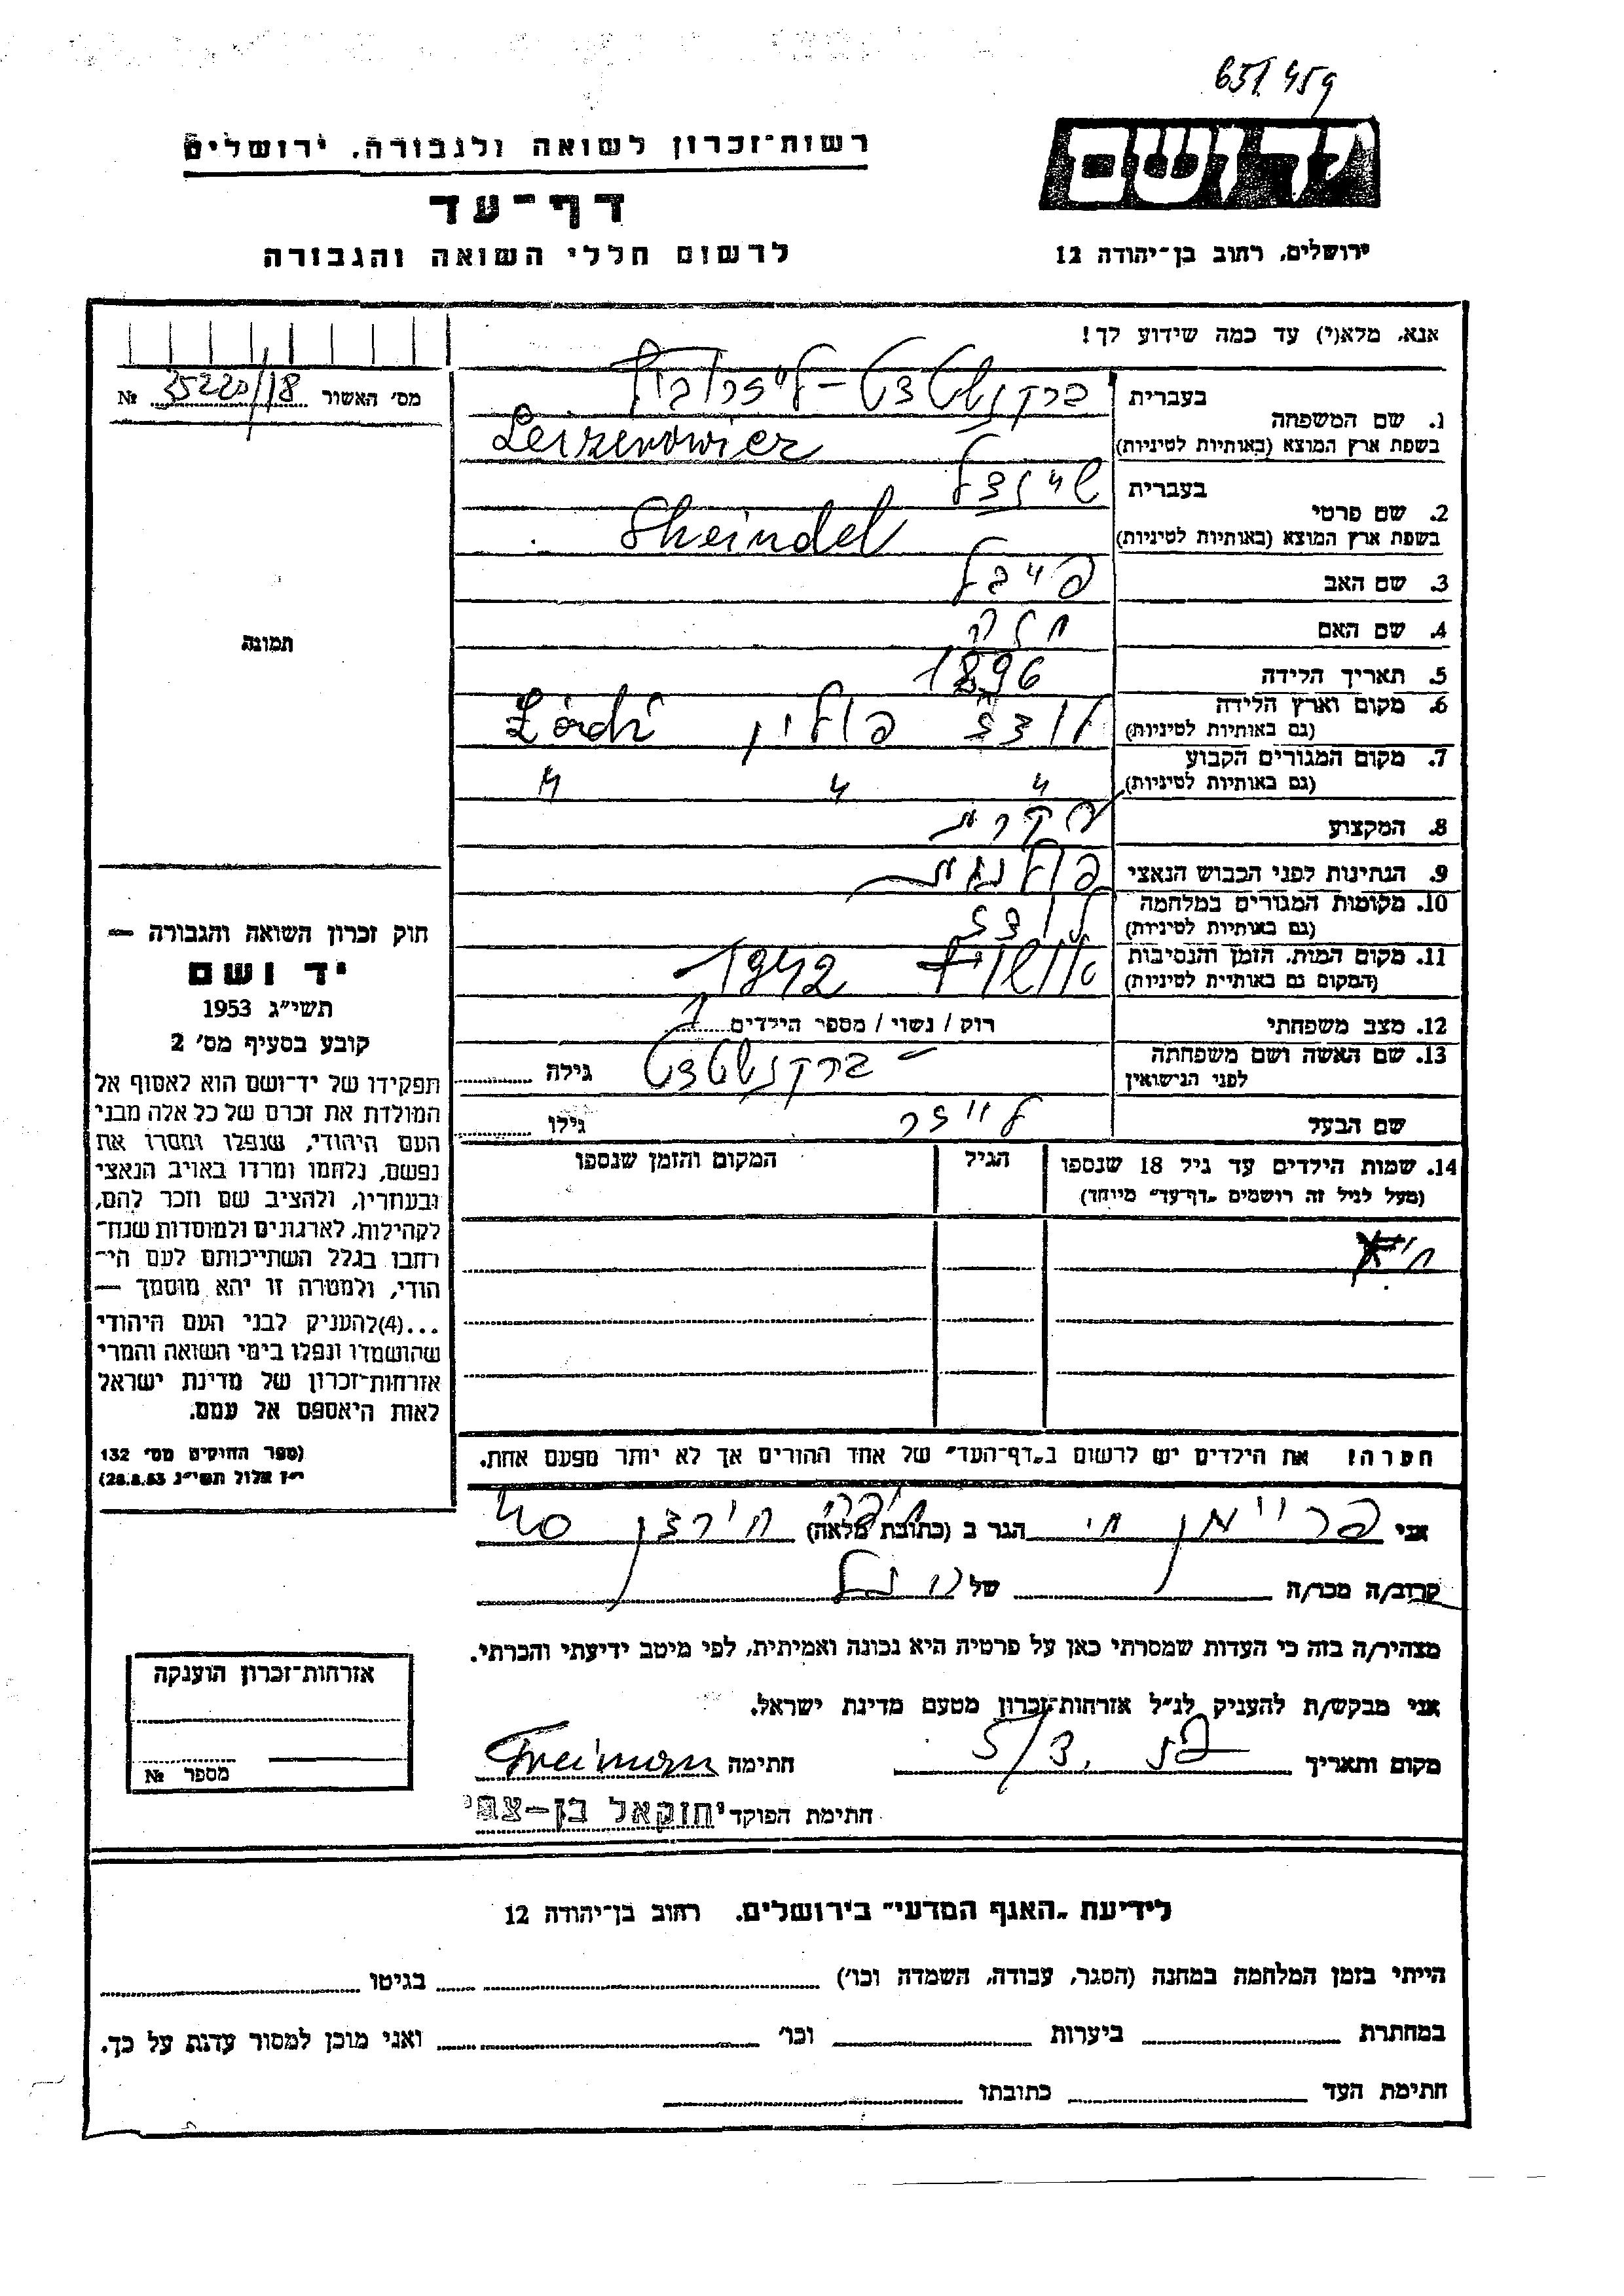 651 459
רשות־זכרון לשואה ולגבורה, ירושלים
יד ושם
דף־עד
לרשום חללי השואה והגבורה
ירושלים, רחוב בן־יהודה 12
אנא, מלא(י) עד כמה שידוע לך!
מס' האשור 35220/18 №
1. שם המשפחה בעברית ברקנשטט - לייזרוביץ
בשפת ארץ המוצא (באותיות לטיניות) Leizerowicz
2. שם פרטי בעברית שיינדל
בשפת ארץ המוצא (באותיות לטיניות) Sheindel
3. שם האב פייבל
4. שם האם חנה
תמונה
5. תאריך הלידה 1896
6. מקום וארץ הלידה לודז פולין Łódź
(גם באותיות לטיניות)
7. מקום המגורים הקבוע " " "
(גם באותיות לטיניות)
8. המקצוע עקרת
9. הנתינות לפני הכבוש הנאצי פולנית
10. מקומות המגורים במלחמה לודז
(גם באותיות לטיניות)
11. מקום המות, הזמן והנסיבות אושוויץ 1942
(המקום גם באותיית לטיניות)
12. מצב משפחתי רוק / נשוי / מספר הילדים
13. שם האשה ושם משפחתה ברקנשטט גילה
לפני הנישואין
שם הבעל לייזר גילו
14. שמות הילדים עד גיל 18 שנספו הגיל המקום והזמן שנספו
(מעל לגיל זה רושמים „דף־עד" מיוחד)
חוק זכרון השואה והגבורה —
יד ושם
תשי"ג 1953
קובע בסעיף מס' 2
תפקידו של יד־ושם הוא לאסוף אל
המולדת את זכרם של כל אלה מבני
העם היהודי, שנפלו ומסרו את
נפשם, נלחמו ומרדו באויב הנאצי
ובעוזריו, ולהציב שם וזכר להם,
לקהילות, לארגונים ולמוסדות שנח־
רחבו בגלל השתייכותם לעם הי־
הודי, ולמטרה זו יהא מוסמך —
...(4)להעניק לבני העם היהודי
שהושמדו ונפלו בימי השואה והמרי
אזרחות־זכרון של מדינת ישראל
לאות היאספם אל עמם.
(ספר החוקים מס' 132
י"ז אלול תשי"ג 28.8.53)
הערה! את הילדים יש לרשום ב„דף־העד" של אחד ההורים אך לא יותר מפעם אחת.
אני פריימן חי הגר ב (כתובת מלאה)
קרוב/ה מכר/ה של
מצהיר/ה בזה כי העדות שמסרתי כאן על פרטיה היא נכונה ואמיתית, לפי מיטב ידיעתי והכרתי.
אני מבקש/ת להעניק לנ"ל אזרחות־זכרון מטעם מדינת ישראל.
מקום ותאריך 5/3. חתימה Freiman
חתימת הפוקד יחזקאל בן-צבי
אזרחות־זכרון הוענקה
מספר №
לידיעת „האגף המדעי" בירושלים, רחוב בן־יהודה 12
הייתי בזמן המלחמה במחנה (הסגר, עבודה, השמדה וכו') בגיטו
במחתרת ביערות וכו' ואני מוכן למסור עדות על כך.
חתימת העד כתובתו